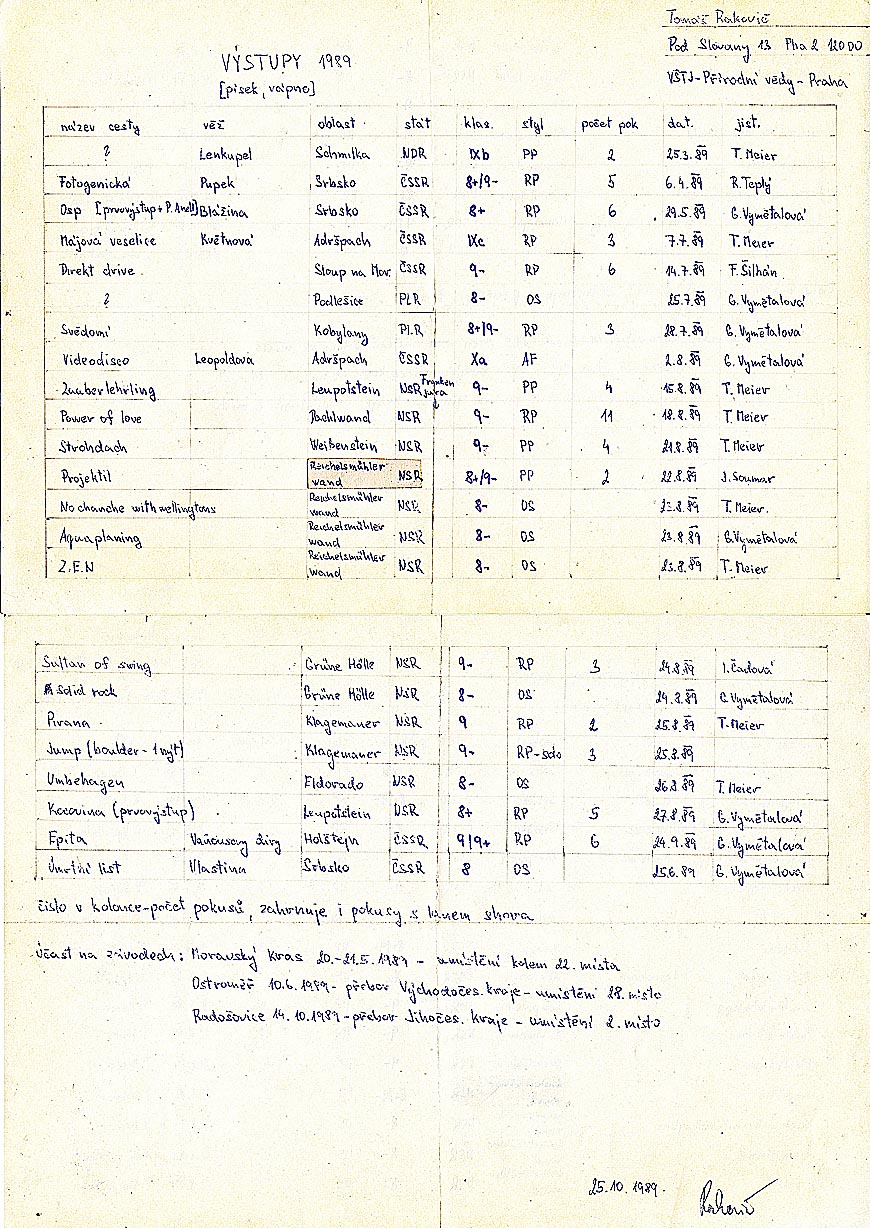 Tomáš Rakovič
Pod Slovany 13 Pha 2 120 00
VŠTJ-Přírodní vědy - Praha
VÝSTUPY 1989
[písek, vápno]
název cesty věž oblast stát klas. styl počet pok dat. jist.
? Lenkupel Schmilka NDR IXb PP 2 25.3.89 T. Meier
Fotogenická Pupek Srbsko ČSSR 8+/9- RP 5 6.4.89 R. Teplý
Osp [prvovýstup + P. Anell] Blažina Srbsko ČSSR 8+ RP 6 29.5.89 G. Vymětalová
Májová veselice Květnová Adršpach ČSSR IXc RP 3 7.7.89 T. Meier
Direkt drive Sloup na Mor. ČSSR 9- RP 6 14.7.89 F. Šilhán
? Podlešice PLR 8- OS 25.7.89 G. Vymětalová
Svědomí Kobylany PLR 8+/9- RP 3 28.7.89 G. Vymětalová
Videodisco Leopoldova Adršpach ČSSR Xa AF 2.8.89 G. Vymětalová
Zauberlehrling Leupotstein NSR Franken jura 9- PP 4 15.8.89 T. Meier
Power of love Dachlwand NSR 9- RP 11 18.8.89 T. Meier
Strohdach Weißenstein NSR 9- PP 4 21.8.89 T. Meier
Projektil Reichelsmühler wand NSR 8+/9- PP 2 22.8.89 J. Soumar
No chanche with wellingtons Reichelsmühler wand NSR 8- OS 8.89 T. Meier.
Aquaplaning Reichelsmühler wand NSR 8- OS 23.8.89 G. Vymětalová
Z.E.N Reichelsmühler wand NSR 8- OS 23.8.89 T. Meier
Sultan of swing Grüne Hölle NSR 9- RP 3 24.8.89 I. Čadová
A solid rock Grüne Hölle NSR 8- OS 24.8.89 G. Vymětalová
Pirana Klagemauer NSR 9 RP 2 25.8.89 T. Meier
Jump (boulder - 1 nýt) Klagemauer NSR 9- RP-solo 3 25.8.89
Umbehagen Eldorado NSR 8- OS 26.8.89 T. Meier
(prvovýstup) Leupotstein NSR 8+ RP 5 27.8.89 G. Vymětalová
Epita Vaňousovy díry Holštejn ČSSR 9/9+ RP 6 24.9.89 G. Vymětalová
Úmrtní list Vlastina Srbsko ČSSR 8 OS 25.6.89 G. Vymětalová
číslo v kolonce-počet pokusů, zahrnuje i pokusy s
Účast na závodech: Moravský Kras 20.-21.5.1989 - umístění kolem 22. místa
Ostroměř 10.6.1989 - přebor Východočes. kraje - umístění 28. místo
Radošovice 14.10.1989 - přebor Jihočes. kraje - umístění 2. místo
25.10.1989.